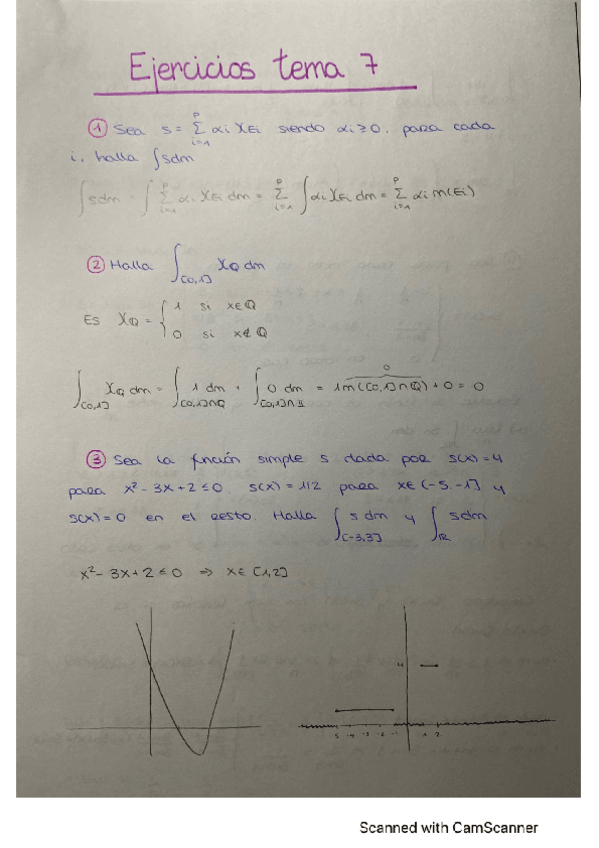 Ejercicios tema 7
① Sea s = Σ_{i=1}^{p} αi χEi siendo αi ≥ 0, para cada
i, halla ∫ sdm
∫ sdm = ∫ Σ_{i=1}^{p} αi χEi dm = Σ_{i=1}^{p} ∫ αi χEi dm = Σ_{i=1}^{p} αi m(Ei)
② Halla ∫_{[0,1]} χQ dm
Es χQ = { 1 si x∈ℚ
0 si x∉ℚ
∫_{[0,1]} χQ dm = ∫_{[0,1]∩ℚ} 1 dm + ∫_{[0,1]∩𝕀} 0 dm = 1 m([0,1]∩ℚ) + 0 = 0
0
③ Sea la función simple s dada por s(x)=4
para x²-3x+2≤0, s(x)=1/2 para x∈(-5,-1] y
s(x)=0 en el resto. Halla ∫_{[-3,3]} s dm y ∫_ℝ sdm
x²-3x+2≤0 ⇒ x∈[1,2]
4
-5 -4 -3 -2 -1 1 2
Scanned with CamScanner